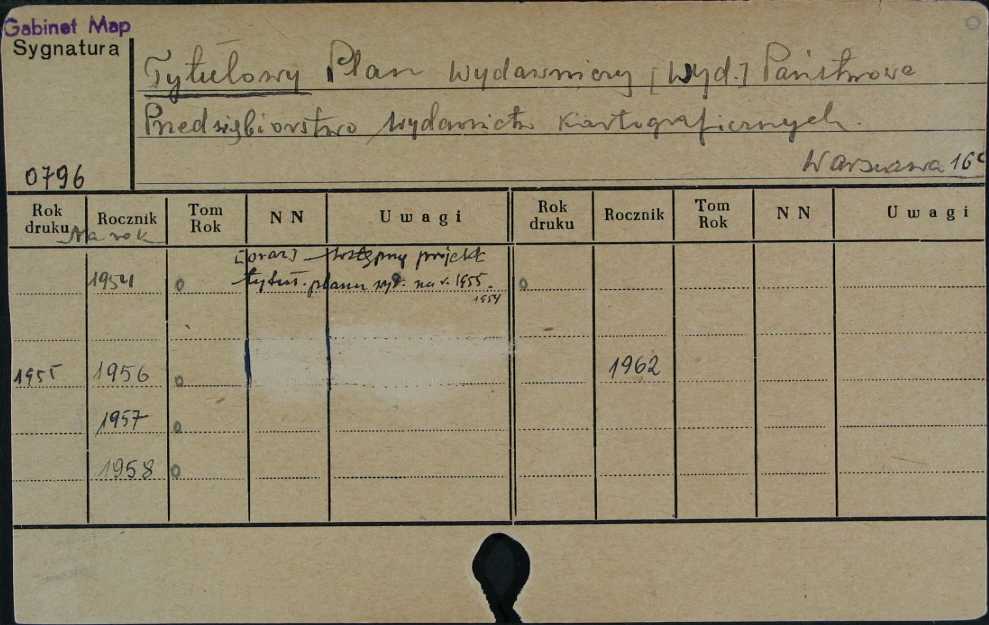 Gabinet Map
Sygnatura
Tytułowy Plan Wydawniczy [Wyd.] Państwowe
Przedsiębiorstwo Wydawnictw Kartograficznych.
Warszawa 16°
0796
Rok druku Rocznik Tom Rok N N Uwagi Rok druku Rocznik Tom Rok N N Uwagi
Na rok
[oraz] wstępny projekt
1954 tytuł. planu wyd. na r. 1955.
1954
1955 1956 1962
1957
1958